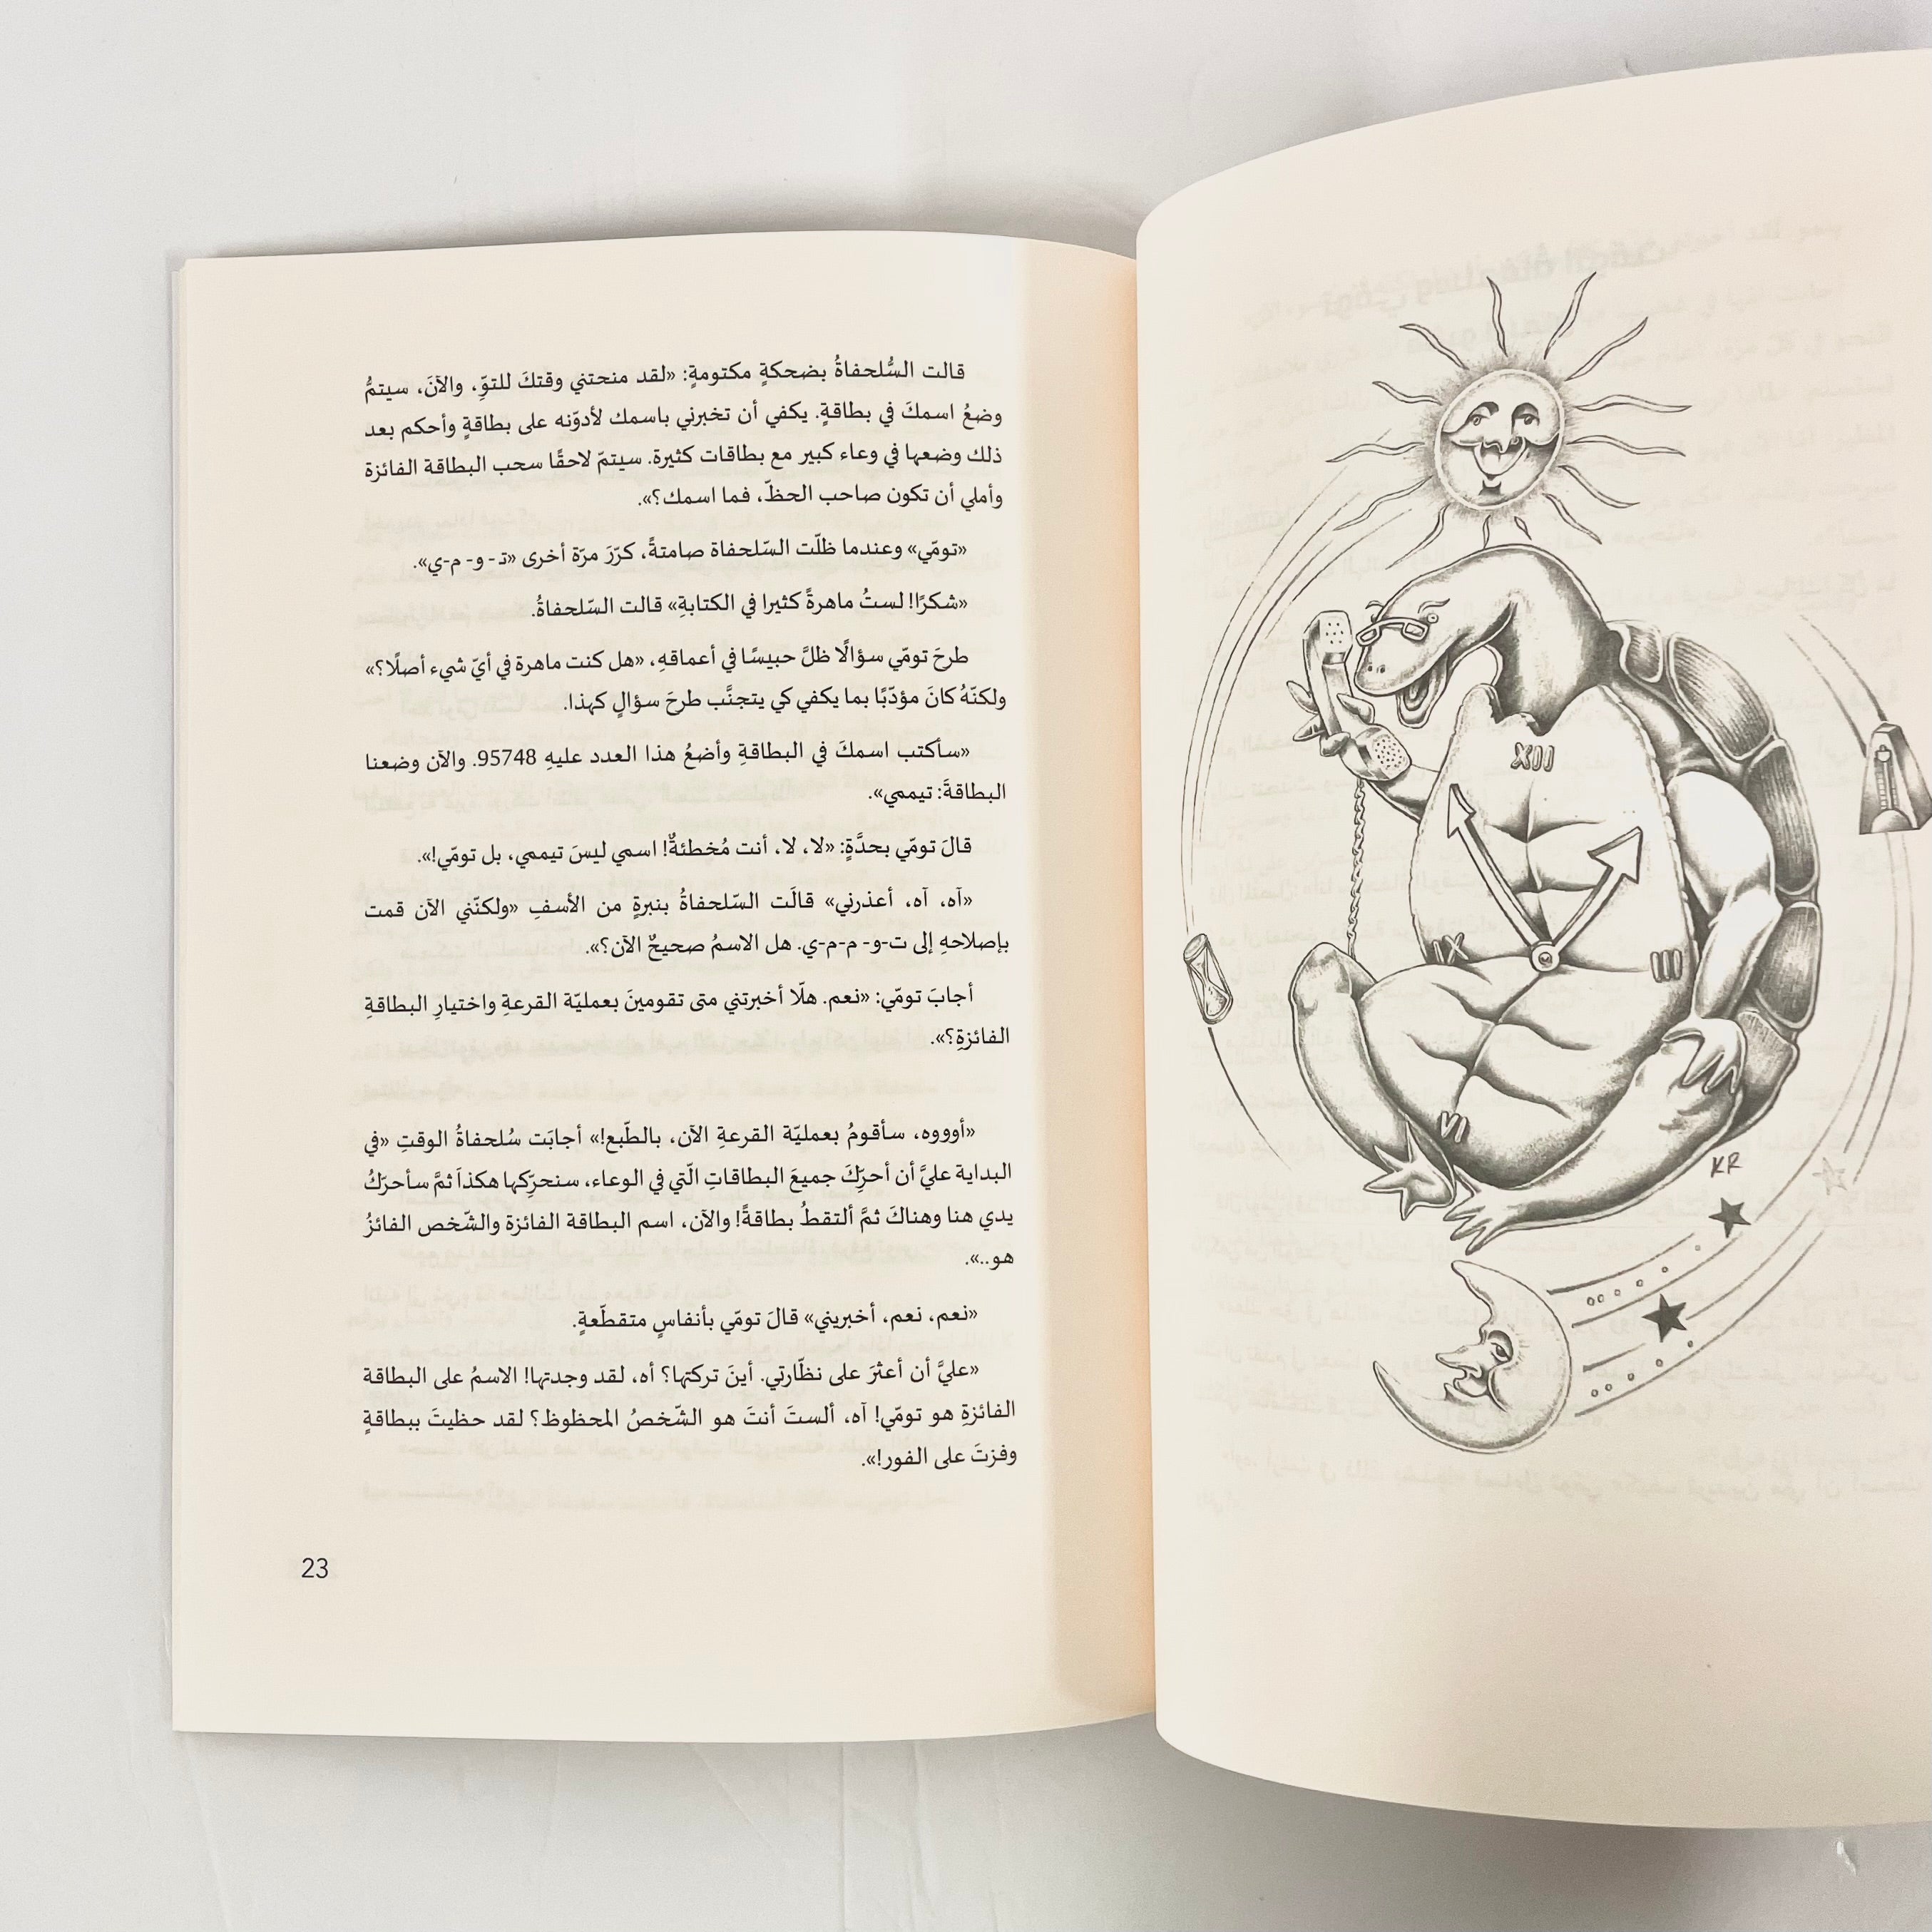 XII
IX
III
VI
KR
قالت السُّلحفاةُ بضحكةٍ مكتومةٍ: «لقد منحتني وقتكَ للتوِّ، والآنَ، سيتمُّ
وضعُ اسمكَ في بطاقةٍ. يكفي أن تخبرني باسمك لأدوّنه على بطاقةٍ وأحكم بعد
ذلك وضعها في وعاء كبير مع بطاقات كثيرة. سيتمّ لاحقًا سحب البطاقة الفائزة
وأملي أن تكون صاحب الحظّ، فما اسمك؟».
«تومّي» وعندما ظلّت السّلحفاة صامتةً، كرّرَ مرّة أخرى «تـ - و- م-ي».
«شكرًا! لستُ ماهرةً كثيرا في الكتابةِ» قالت السّلحفاةُ.
طرحَ تومّي سؤالًا ظلَّ حبيسًا في أعماقهِ، «هل كنت ماهرة في أيّ شيء أصلًا؟»
ولكنّهُ كانَ مؤدّبًا بما يكفي كي يتجنَّب طرحَ سؤالٍ كهذا.
«سأكتب اسمكَ في البطاقةِ وأضعُ هذا العدد عليهِ 95748. والآن وضعنا
البطاقةَ: تيممي».
قالَ تومّي بحدَّةٍ: «لا، لا، أنت مُخطئةٌ! اسمي ليسَ تيممي، بل تومّي!».
«آه، آه، أعذرني» قالَت السّلحفاةُ بنبرةٍ من الأسفِ «ولكنّني الآن قمت
بإصلاحهِ إلى ت-و- م-م-ي. هل الاسمُ صحيحٌ الآن؟».
أجابَ تومّي: «نعم. هلّا أخبرتني متى تقومينَ بعمليّة القرعةِ واختيارِ البطاقةِ
الفائزةِ؟».
«أوووه، سأقومُ بعمليّة القرعةِ الآن، بالطّبع!» أجابَت سُلحفاةُ الوقتِ «في
البداية عليَّ أن أحرِّكَ جميعَ البطاقاتِ الّتي في الوعاء، سنحرِّكها هكذاَ ثمَّ سأحرّكُ
يدي هنا وهناكَ ثمَّ ألتقطُ بطاقةً! والآن، اسم البطاقة الفائزة والشّخص الفائزُ
هو..».
«نعم، نعم، أخبريني» قالَ تومّي بأنفاسٍ متقطّعةٍ.
«عليَّ أن أعثرَ على نظّارتي. أينَ تركتها؟ أه، لقد وجدتها! الاسمُ على البطاقة
الفائزةِ هو تومّي! آه، ألستَ أنتَ هو الشّخصُ المحظوظ؟ لقد حظيتَ ببطاقةٍ
وفزتَ على الفور!».
23